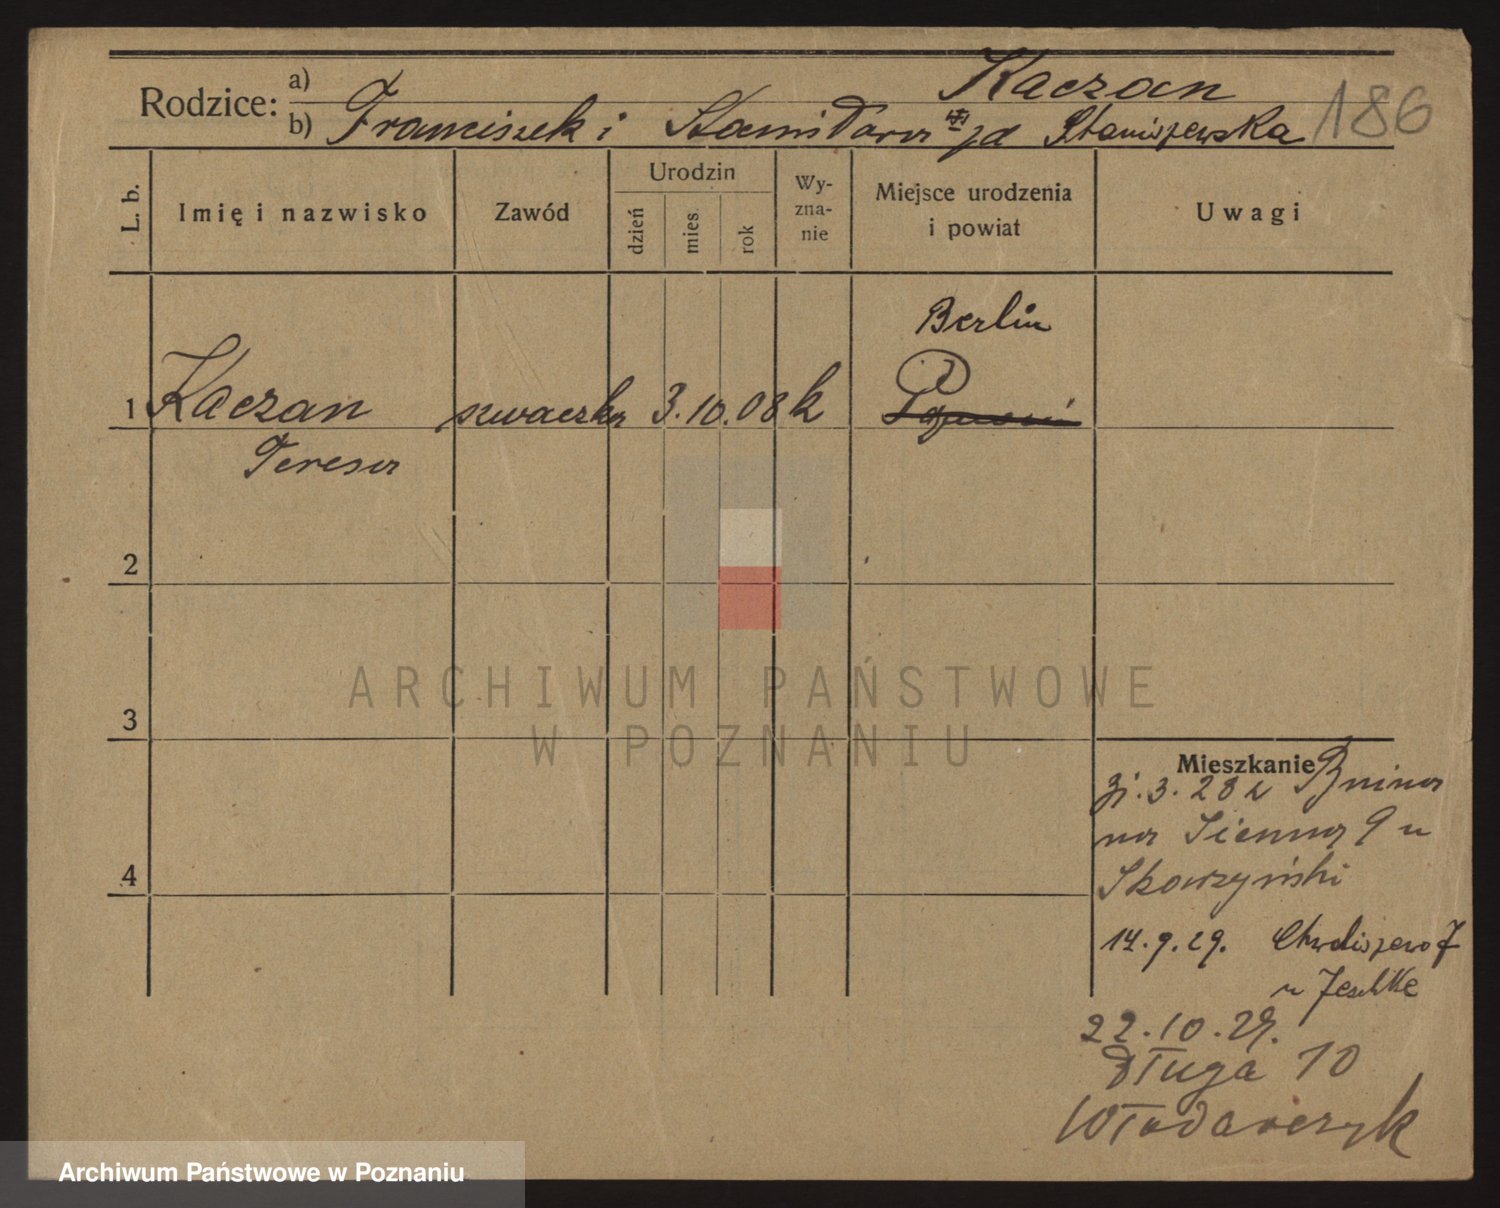 Rodzice: a) Kaczan 186
b) Franciszek i Stanisława zd Staniszewska
L. b.
Imię i nazwisko
Zawód
Urodzin
dzień
mies.
rok
Wy-
zna-
nie
Miejsce urodzenia
i powiat
Uwagi
Berlin
1 Kaczan szwaczka 3. 10. 08 k
Teresa
2
3
4
Mieszkanie
31.3.28 z Bnina
na Sienna 9 u
Skarzyński
14.9.29. Chwaliszewo 7
u Jeschke
22.10.29.
Długa 10
Włodarczyk
ARCHIWUM PAŃSTWOWE
W POZNANIU
Archiwum Państwowe w Poznaniu